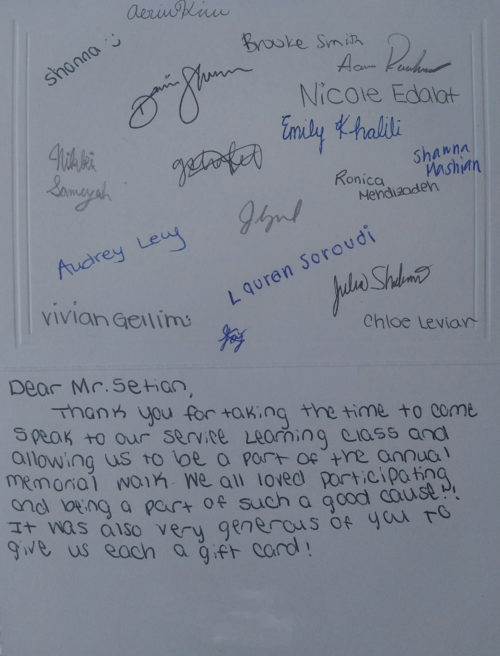 Shanna
Brooke Smith
Nicole Edalat
Emily Khalili
Nikki
Sameyah
Shanna
Mashian
Ronica
Mendizadeh
Audrey Levy
Lauren Soroudi
Julia
Vivian Gellimi
Chloe Levian
Dear Mr. Setian,
Thank you for taking the time to come
speak to our service learning class and
allowing us to be a part of the annual
memorial walk. We all loved participating
and being a part of such a good cause!!
It was also very generous of you to
give us each a gift card!